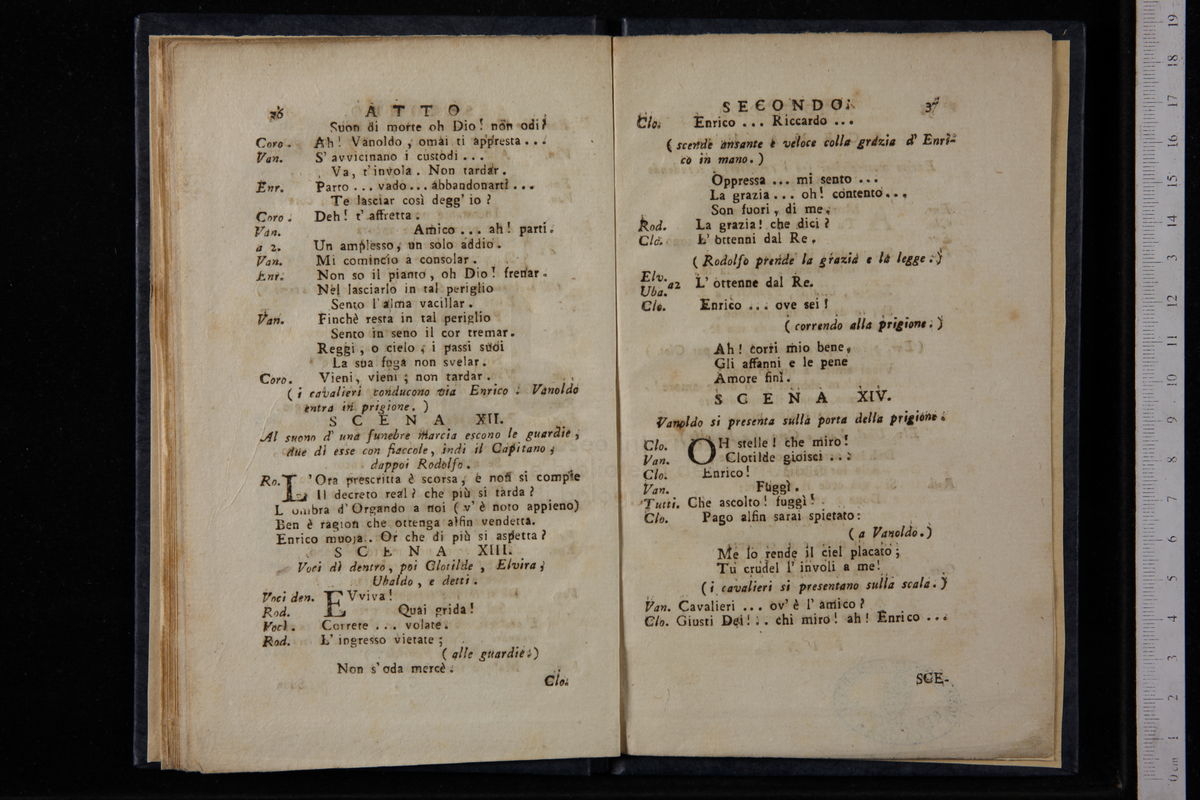 36 ATTO
Suon di morte oh Dio! non odi?
Coro. Ah! Vanoldo, omai ti appresta...
Van. S'avvicinano i custodi...
Va, t'invola. Non tardar.
Enr. Parto... vado... abbandonarti...
Te lasciar così degg'io?
Coro. Deh! t'affretta.
Van. Amico... ah! parti.
a 2. Un amplesso, un solo addio.
Van. Mi comincio a consolar.
Enr. Non so il pianto, oh Dio! frenar.
Nel lasciarlo in tal periglio
Sento l'alma vacillar.
Van. Finchè resta in tal periglio
Sento in seno il cor tremar.
Reggi, o cielo, i passi suoi
La sua fuga non svelar.
Coro. Vieni, vieni; non tardar.
(i cavalieri conducono via Enrico. Vanoldo
entra in prigione.)
SCENA XII.
Al suono d'una funebre marcia escono le guardie,
due di esse con fiaccole, indi il Capitano,
dappoi Rodolfo.
Ro. L'Ora prescritta è scorsa, e non si compie
Il decreto real? che più si tarda?
L'ombra d'Orgando a noi (v'è noto appieno)
Ben è ragion che ottenga alfin vendetta.
Enrico muoja.. Or che di più si aspetta?
SCENA XIII.
Voci di dentro, poi Clotilde, Elvira,
Ubaldo, e detti.
Voci den. EVviva!
Rod. Quai grida!
Voci. Correte... volate.
Rod. L'ingresso vietate;
(alle guardie.)
Non s'oda mercè.
Clo.
SECONDO. 37
Clo. Enrico... Riccardo...
(scende ansante e veloce colla grazia d'Enri-
co in mano.)
Oppressa... mi sento...
La grazia... oh! contento...
Son fuori, di me.
Rod. La grazia! che dici?
Clo. L'ottenni dal Re.
(Rodolfo prende la grazia e la legge.)
Elv.
Uba. a2 L'ottenne dal Re.
Clo. Enrico... ove sei!
(correndo alla prigione.)
Ah! torri mio bene,
Gli affanni e le pene
Amore finì.
SCENA XIV.
Vanoldo si presenta sulla porta della prigione.
Clo. OH stelle! che miro!
Van. Clotilde gioisci...
Clo. Enrico!
Van. Fuggì.
Tutti. Che ascolto! fuggì!
Clo. Pago alfin sarai spietato:
(a Vanoldo.)
Me lo rende il ciel placato;
Tu crudel l'involi a me!
(i cavalieri si presentano sulla scala.)
Van. Cavalieri... ov'è l'amico?
Clo. Giusti Dei!... chi miro! ah! Enrico...
SCE-